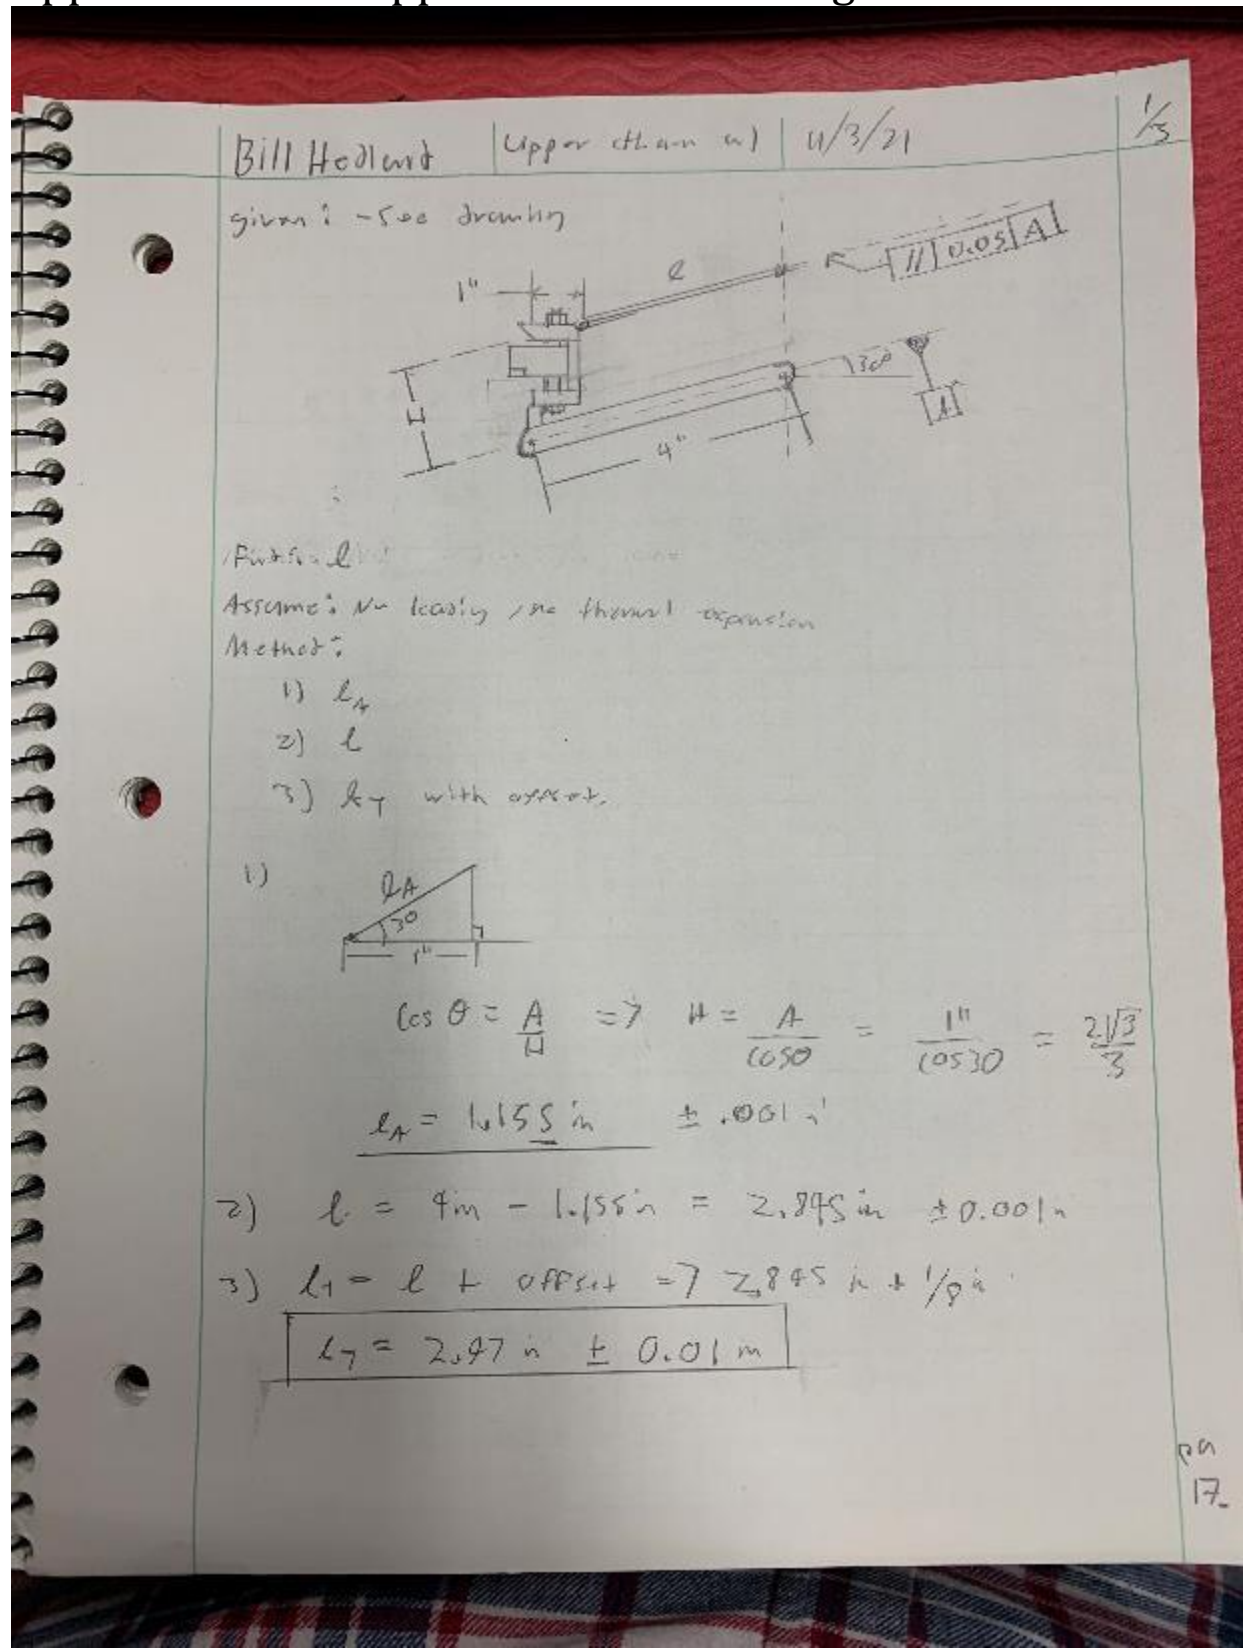 Bill Hedlund Upper 4/3/21 1/3
given: - See drawing
1" l // 0.05 A
H 30° A
4"
Find: l
Assume: No loading, no thermal expansion
Method:
1) lA
2) l
3) lT with offset.
1) lA
30
1"
Cos θ = A/H => H = A/cosθ = 1"/cos30 = 2√3/3
lA = 1.155 in ± .001 in
2) l = 4in - 1.155in = 2.845 in ± 0.001in
3) lT = l + offset => 2.845 in + 1/8 in
lT = 2.97 in ± 0.01 in
17